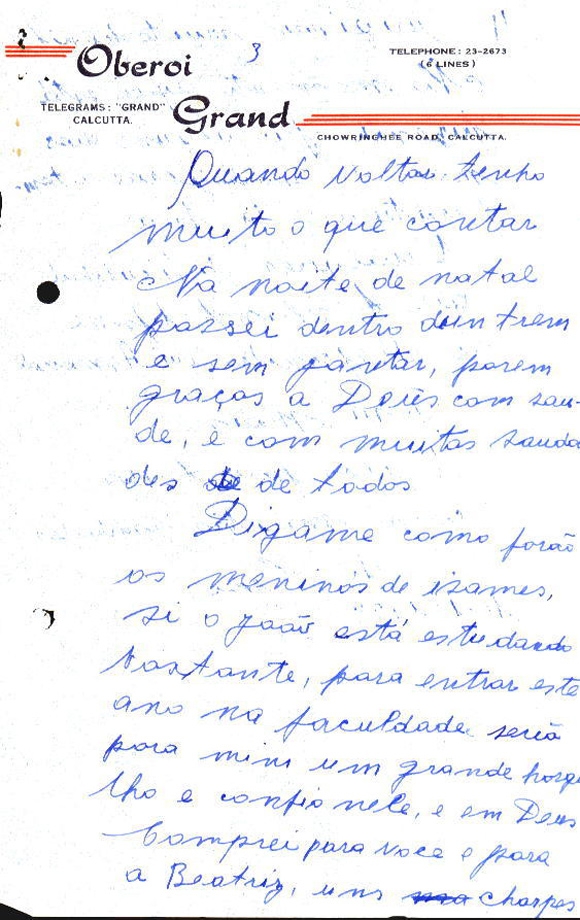 Oberoi
3
TELEPHONE: 23-2673
(6 LINES)
TELEGRAMS: "GRAND"
CALCUTTA.
Grand
CHOWRINGHEE ROAD, CALCUTTA.
Quando voltar tenho
muito o que contar
Na noite de natal
passei dentro dun trem
e sem jantar, porem
graças a Deus com sau-
de, e com muitas sauda
des de de todos
Digame como forão
os meninos de isames,
si o João está estudando
bastante, para entrar este
ano na faculdade seria
para mim um grande horgu
lho e confio nele, e em Deus
Comprei para voce e para
a Beatriz, uns charpes